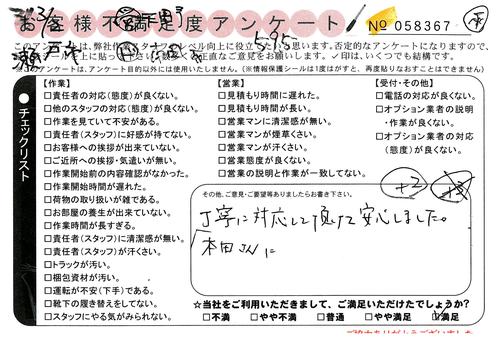 お客様不満足度アンケート
No 058367
このアンケートは、弊社
否定的なアンケートになりますので、
正直なご意見をお願いします。✓印は、いくつでも結構です。
※このアンケートは、アンケート目的以外には使用いたしません。(※情報保護シールは1度はがすと、再度貼りなおすことはできません)
チェックリスト
【作業】
□責任者の対応(態度)が良くない。
□他のスタッフの対応(態度)が良くない。
□作業を見ていて不安がある。
□責任者(スタッフ)に好感が持てない。
□お客様への挨拶が出来ていない。
□ご近所への挨拶・気遣いが無い。
□作業開始前の内容確認がなかった。
□作業開始時間が遅れた。
□荷物の取り扱いが雑である。
□お部屋の養生が出来ていない。
□作業時間が長すぎる。
□責任者(スタッフ)に清潔感が無い。
□責任者(スタッフ)が汗くさい。
□トラックが汚い。
□梱包資材が汚い。
□運転が不安(下手)である。
□靴下の履き替えをしてない。
□スタッフにやる気がみられない。
【営業】
□見積もり時間に遅れた。
□見積もり時間が長い。
□営業マンに清潔感が無い。
□営業マンが煙草くさい。
□営業マンが汗くさい。
□営業態度が良くない。
□営業の説明と作業が一致してない。
【受付・その他】
□電話の対応が良くない。
□オプション業者の説明
・作業が良くない。
□オプション業者の対応
(態度)が良くない。
その他、ご意見・ご要望等ありましたらお書き下さい。
+2
丁寧に対応して頂けて安心しました。
本田さんに
☆当社をご利用いただきまして、ご満足いただけたでしょうか?
□不満 □やや不満 □普通 □やや満足 ☑満足
ご協力ありがとうございました